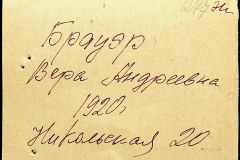 Брауэр
Вера Андреевна
1920г
Никольская 20.